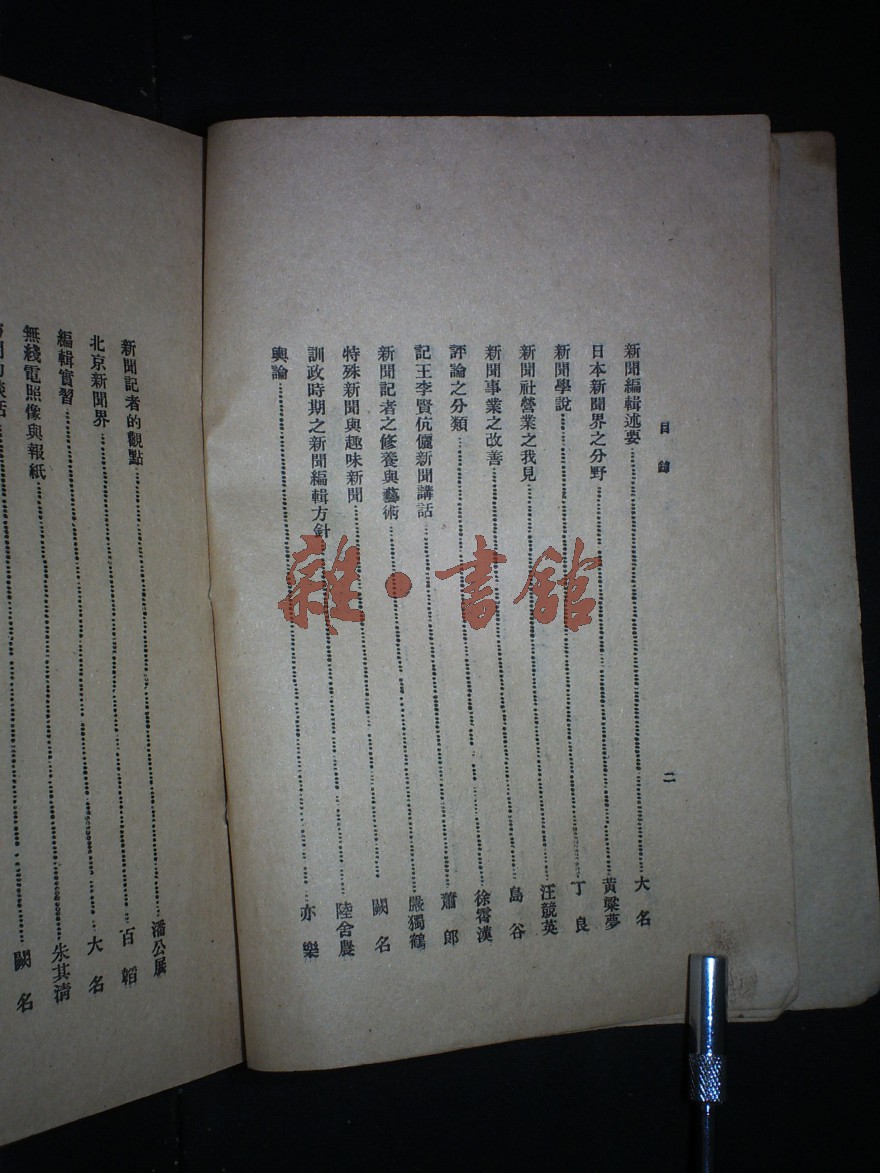 目錄
二
新聞編輯述要……大名
日本新聞界之分野……黃粱夢
新聞學說……丁良
新聞社營業之我見……汪競英
新聞事業之改善……島谷
評論之分類……徐霄漢
記王李賢伉儷新聞講話……蕭郎
新聞記者之修養與藝術……嚴獨鶴
特殊新聞與趣味新聞……闕名
訓政時期之新聞編輯方針……陸舍農
輿論……亦樂
新聞記者的觀點……潘公展
北京新聞界……百韜
編輯實習……大名
無綫電照像與報紙……朱其清
談話……闕名
雜·書館